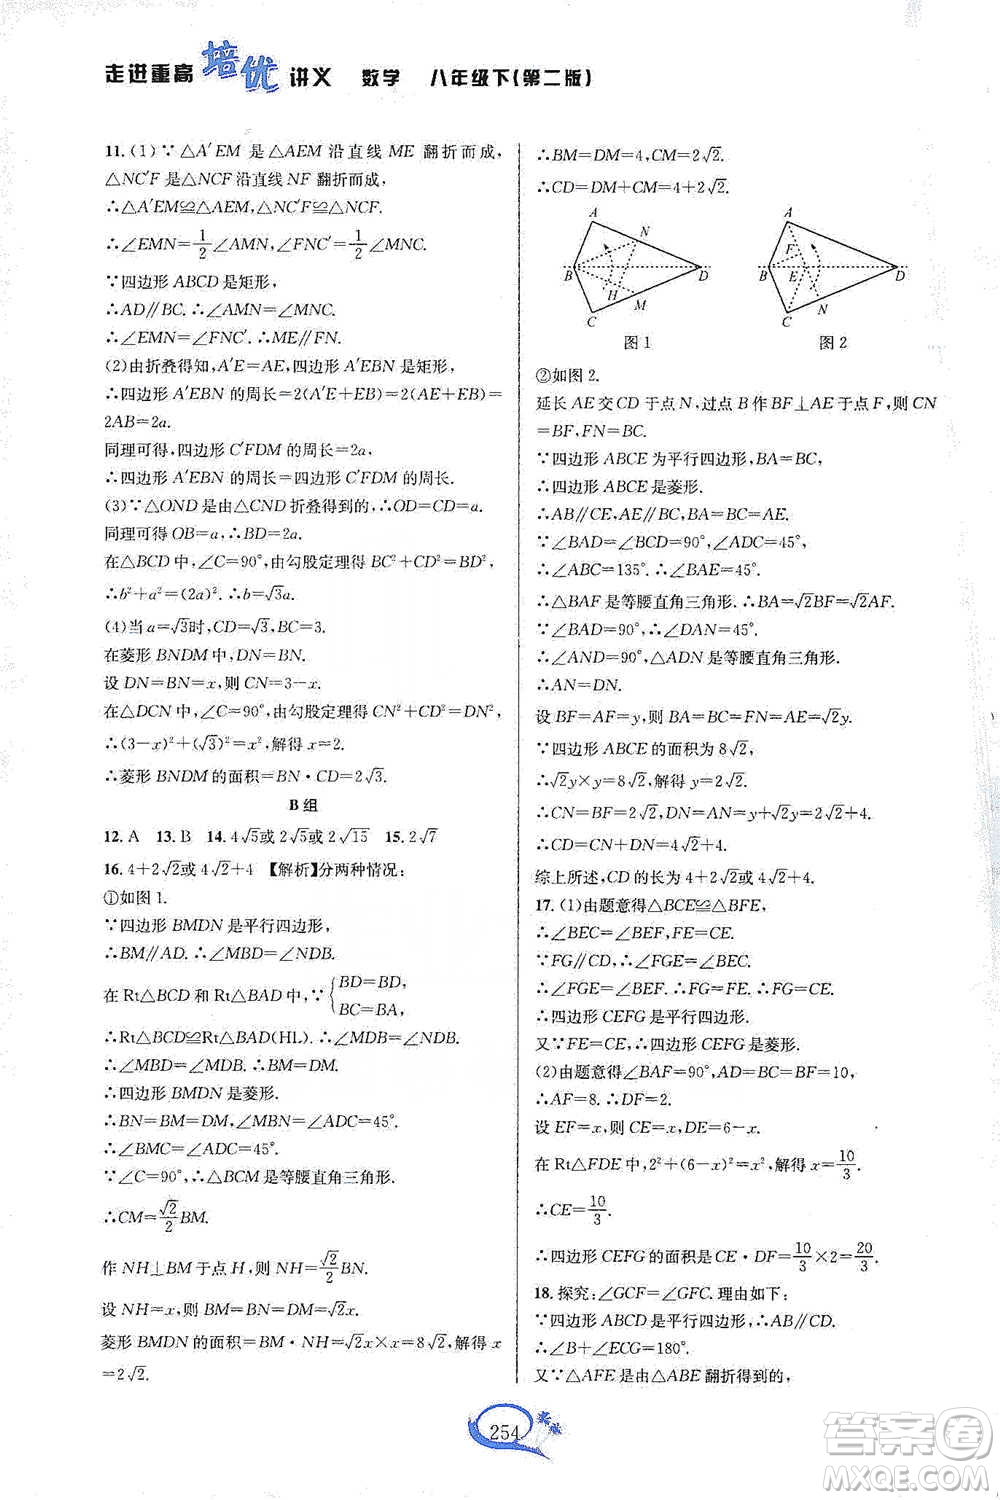 走进重高培优讲义 数学 八年级下(第二版)
11. (1)∵△A′EM 是△AEM 沿直线 ME 翻折而成,
△NC′F 是△NCF 沿直线 NF 翻折而成,
∴△A′EM≌△AEM,△NC′F≌△NCF.
∴∠EMN=1/2∠AMN,∠FNC′=1/2∠MNC.
∵四边形 ABCD 是矩形,
∴AD∥BC.∴∠AMN=∠MNC.
∴∠EMN=∠FNC′.∴ME∥FN.
(2)由折叠得知,A′E=AE,四边形 A′EBN 是矩形,
∴四边形 A′EBN 的周长=2(A′E+EB)=2(AE+EB)=
2AB=2a.
同理可得,四边形 C′FDM 的周长=2a,
∴四边形 A′EBN 的周长=四边形 C′FDM 的周长.
(3)∵△OND 是由△CND 折叠得到的,∴OD=CD=a.
同理可得 OB=a,∴BD=2a.
在△BCD 中,∠C=90°,由勾股定理得 BC²+CD²=BD²
∴b²+a²=(2a)².∴b=√3a.
(4)当 a=√3时,CD=√3,BC=3.
在菱形 BNDM 中,DN=BN.
设 DN=BN=x,则 CN=3-x.
在△DCN 中,∠C=90°,由勾股定理得 CN²+CD²=DN²,
∴(3-x)²+(√3)²=x²,解得 x=2.
∴菱形 BNDM 的面积=BN·CD=2√3.
B 组
12. A 13. B 14. 4√5或 2√5或 2√15 15. 2√7
16. 4+2√2或 4√2+4 【解析】分两种情况:
①如图 1.
∵四边形 BMDN 是平行四边形,
∴BM∥AD.∴∠MBD=∠NDB.
在 Rt△BCD 和 Rt△BAD 中,∵{BD=BD,
BC=BA,
∴Rt△BCD≌Rt△BAD(HL).∴∠MDB=∠NDB.
∴∠MBD=∠MDB.∴BM=DM.
∴四边形 BMDN 是菱形.
∴BN=BM=DM,∠MDN=∠ADC=45°.
∴∠BMC=∠ADC=45°.
∵∠C=90°,∴△BCM 是等腰直角三角形.
∴CM=√2/2BM.
作 NH⊥BM 于点 H,则 NH=√2/2BN.
设 NH=x,则 BM=BN=DM=√2x.
菱形 BMDN 的面积=BM·NH=√2x×x=8√2,解得 x
=2√2.
∴BM=DM=4,CM=2√2.
∴CD=DM+CM=4+2√2.
A
N
B
D
H
M
C
图 1
A
F
B
E
D
N
C
图 2
②如图 2.
延长 AE 交 CD 于点 N,过点 B 作 BF⊥AE 于点 F,则 CN
=BF,FN=BC.
∵四边形 ABCE 为平行四边形,BA=BC,
∴四边形 ABCE 是菱形.
∴AB∥CE,AE∥BC,BA=BC=AE.
∵∠BAD=∠BCD=90°,∠ADC=45°,
∴∠ABC=135°.∴∠BAE=45°.
∴△BAF 是等腰直角三角形.∴BA=√2BF=√2AF.
∵∠BAD=90°,∴∠DAN=45°.
∴∠AND=90°,△ADN 是等腰直角三角形.
∴AN=DN.
设 BF=AF=y,则 BA=BC=FN=AE=√2y.
∵四边形 ABCE 的面积为 8√2,
∴√2y×y=8√2,解得 y=2√2.
∴CN=BF=2√2,DN=AN=y+√2y=2√2+4.
∴CD=CN+DN=4√2+4.
综上所述,CD 的长为 4+2√2或 4√2+4.
17. (1)由题意得△BCE≌△BFE,
∴∠BEC=∠BEF,FE=CE.
∵FG∥CD,∴∠FGE=∠BEC.
∴∠FGE=∠FEG.∴FG=FE.∴FG=CE.
∴四边形 CEFG 是平行四边形.
又∵FE=CE,∴四边形 CEFG 是菱形.
(2)由题意得∠BAF=90°,AD=BC=BF=10,
∴AF=8.∴DF=2.
设 EF=x,则 CE=x,DE=6-x.
在 Rt△FDE 中,2²+(6-x)²=x²,解得 x=10/3.
∴CE=10/3.
∴四边形 CEFG 的面积是 CE·DF=10/3×2=20/3.
18. 探究:∠GCF=∠GFC.理由如下:
∵四边形 ABCD 是平行四边形,
∴∠B+∠ECG=180°.
又∵△AFE 是由△ABE 翻折得到的,
254
答案圈
MXQE.COM